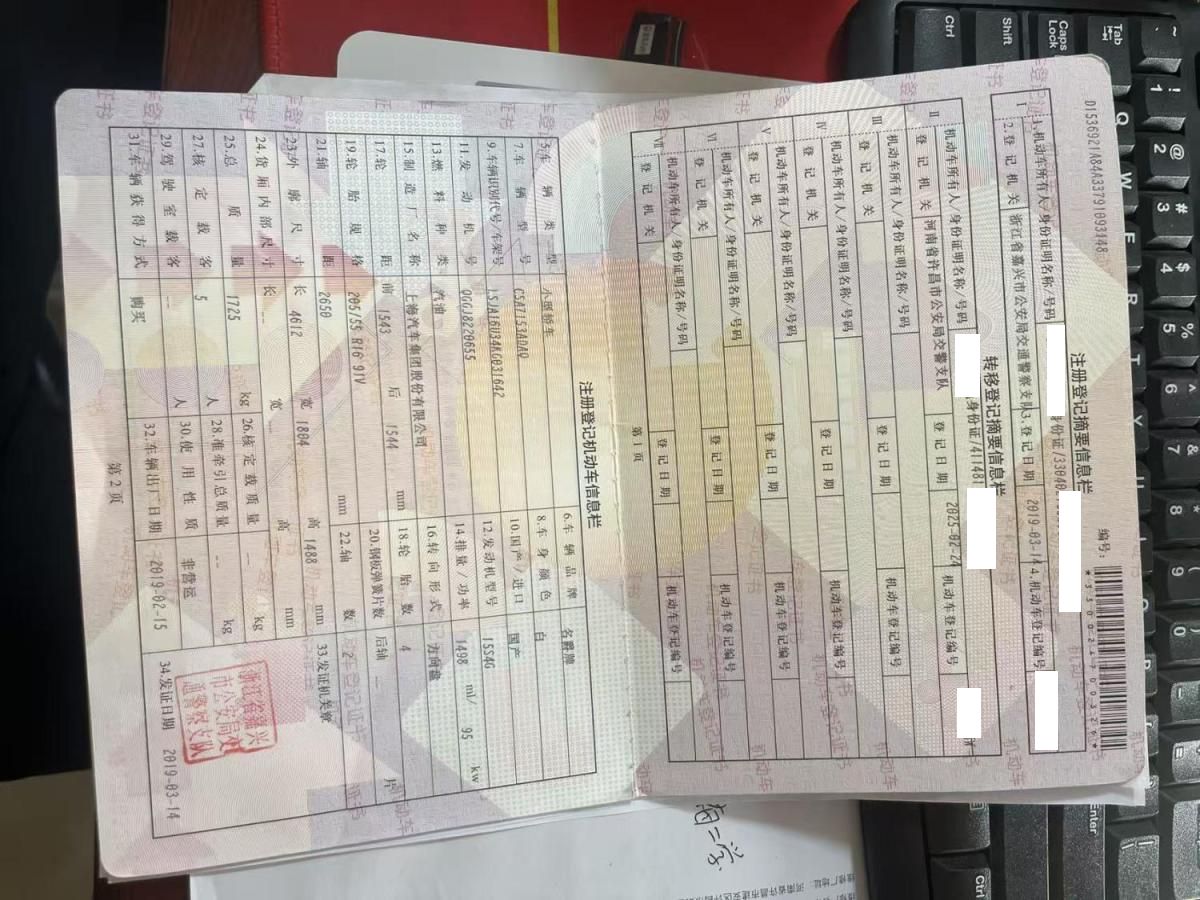 注册登记摘要信息栏
D1536921A84A33791093148
编号:
I
1.机动车所有人/身份证明名称/号码
份证/33040
2.登记机关 浙江省嘉兴市公安局交通警察支队 3.登记日期 2019-03-14 4.机动车登记编号
转移登记摘要信息栏
II
机动车所有人/身份证明名称/号码 身份证/41148
登记机关 河南省许昌市公安局交警支队 登记日期 2025-02-24 机动车登记编号
III
机动车所有人/身份证明名称/号码
登记机关 登记日期 机动车登记编号
IV
机动车所有人/身份证明名称/号码
登记机关 登记日期 机动车登记编号
V
机动车所有人/身份证明名称/号码
登记机关 登记日期 机动车登记编号
VI
机动车所有人/身份证明名称/号码
登记机关 登记日期 机动车登记编号
VII
机动车所有人/身份证明名称/号码
登记机关 登记日期 机动车登记编号
第1页
注册登记机动车信息栏
5.车辆类型 小型轿车 6.车辆品牌 名爵牌
7.车辆型号 CSA7153ADAQ 8.车身颜色 白
9.车辆识别代号/车架号 LSJA16U34KG031642 10.国产/进口 国产
11.发动机号 QGGJ8220655 12.发动机型号 15S4G
13.燃料种类 汽油 14.排量/功率 1498 ml/ 95 kw
15.制造厂名称 上海汽车集团股份有限公司 16.转向形式 方向盘
17.轮距 前 1543 后 1544 mm 18.轮胎数 4
19.轮胎规格 205/55 R16 91V 20.钢板弹簧片数 后轴 -- 片
21.轴距 2650 mm 22.轴数 2 33.发证机关章
23.外廓尺寸 长 4612 宽 1804 高 1488 mm
24.货厢内部尺寸 长 -- 宽 -- 高 -- mm
25.总质量 1725 kg 26.核定载质量 -- kg
27.核定载客 5 人 28.准牵引总质量 -- kg
浙江省嘉兴
市公安局交
通警察支队
29.驾驶室载客 -- 人 30.使用性质 非营运
31.车辆获得方式 购买 32.车辆出厂日期 2019-02-15 34.发证日期 2019-03-14
第2页
Ctrl
Shift
Caps
Lock
Tab
Enter
Ctrl